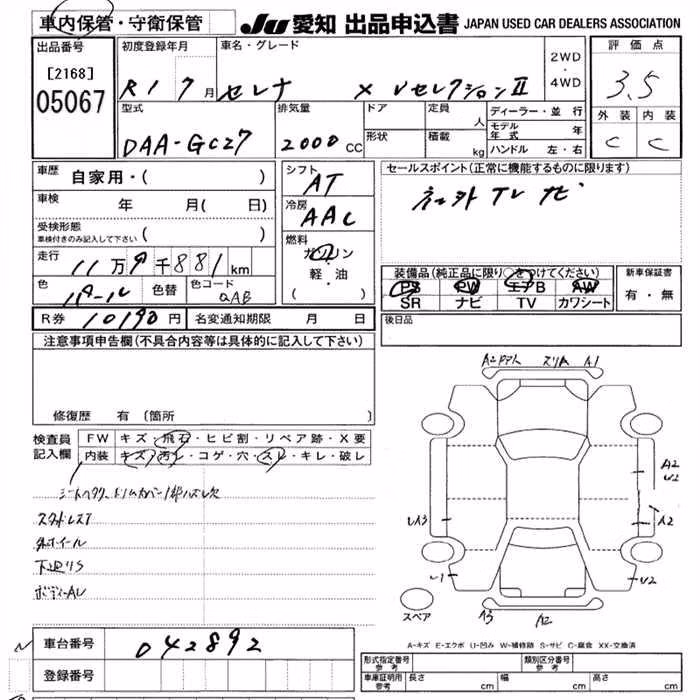 車内保管・守衛保管 JU 愛知 出品申込書 JAPAN USED CAR DEALERS ASSOCIATION
出品番号 [2168] 05067
初度登録年月 R1 7月
車名・グレード セレナ X Vセレクション II
2WD・4WD
評価点 3.5
外装 C 内装 C
型式 DAA-GC27
排気量 2000 CC
ドア 形状
定員 人 積載 kg
ディーラー・並行
モデル年式 年
ハンドル 左・右
車歴 自家用・( )
車検 年 月( 日)
受検形態 車検付きのみ記入して下さい ( )
走行 11万9千881km
色 パール 色替 色コード QAB
シフト AT
冷房 AAC
燃料 ガソリン・軽・油 ( )
セールスポイント(正常に機能するものに限ります)
TV ナビ
装備品(純正品に限り○をつけてください)
PS PW エアB AW
SR ナビ TV カワシート
新車保証書 有・無
R券 10190円 名変通知期限 月 日
後日品
注意事項申告欄(不具合内容等は具体的に記入して下さい)
修復歴 有 〔箇所 〕
検査員記入欄
FW キズ・飛石・ヒビ割・リペア跡・X要
内装 キズ・汚レ・コゲ・穴・スレ・キレ・破レ
スタッドレスT
外ホイール
下廻りS
ボディーAU
A2 スリム A1
A2
U2
UA3
A2
U1
U2
スペア
A3 A2
A-キズ E-エクボ U-凹み W-補修跡 S-サビ C-腐食 XX-交換済
車台番号 042892
登録番号
形式指定番号 参考 類別区分番号 参考
車庫証明用 参考 長さ cm 幅 cm 高さ cm